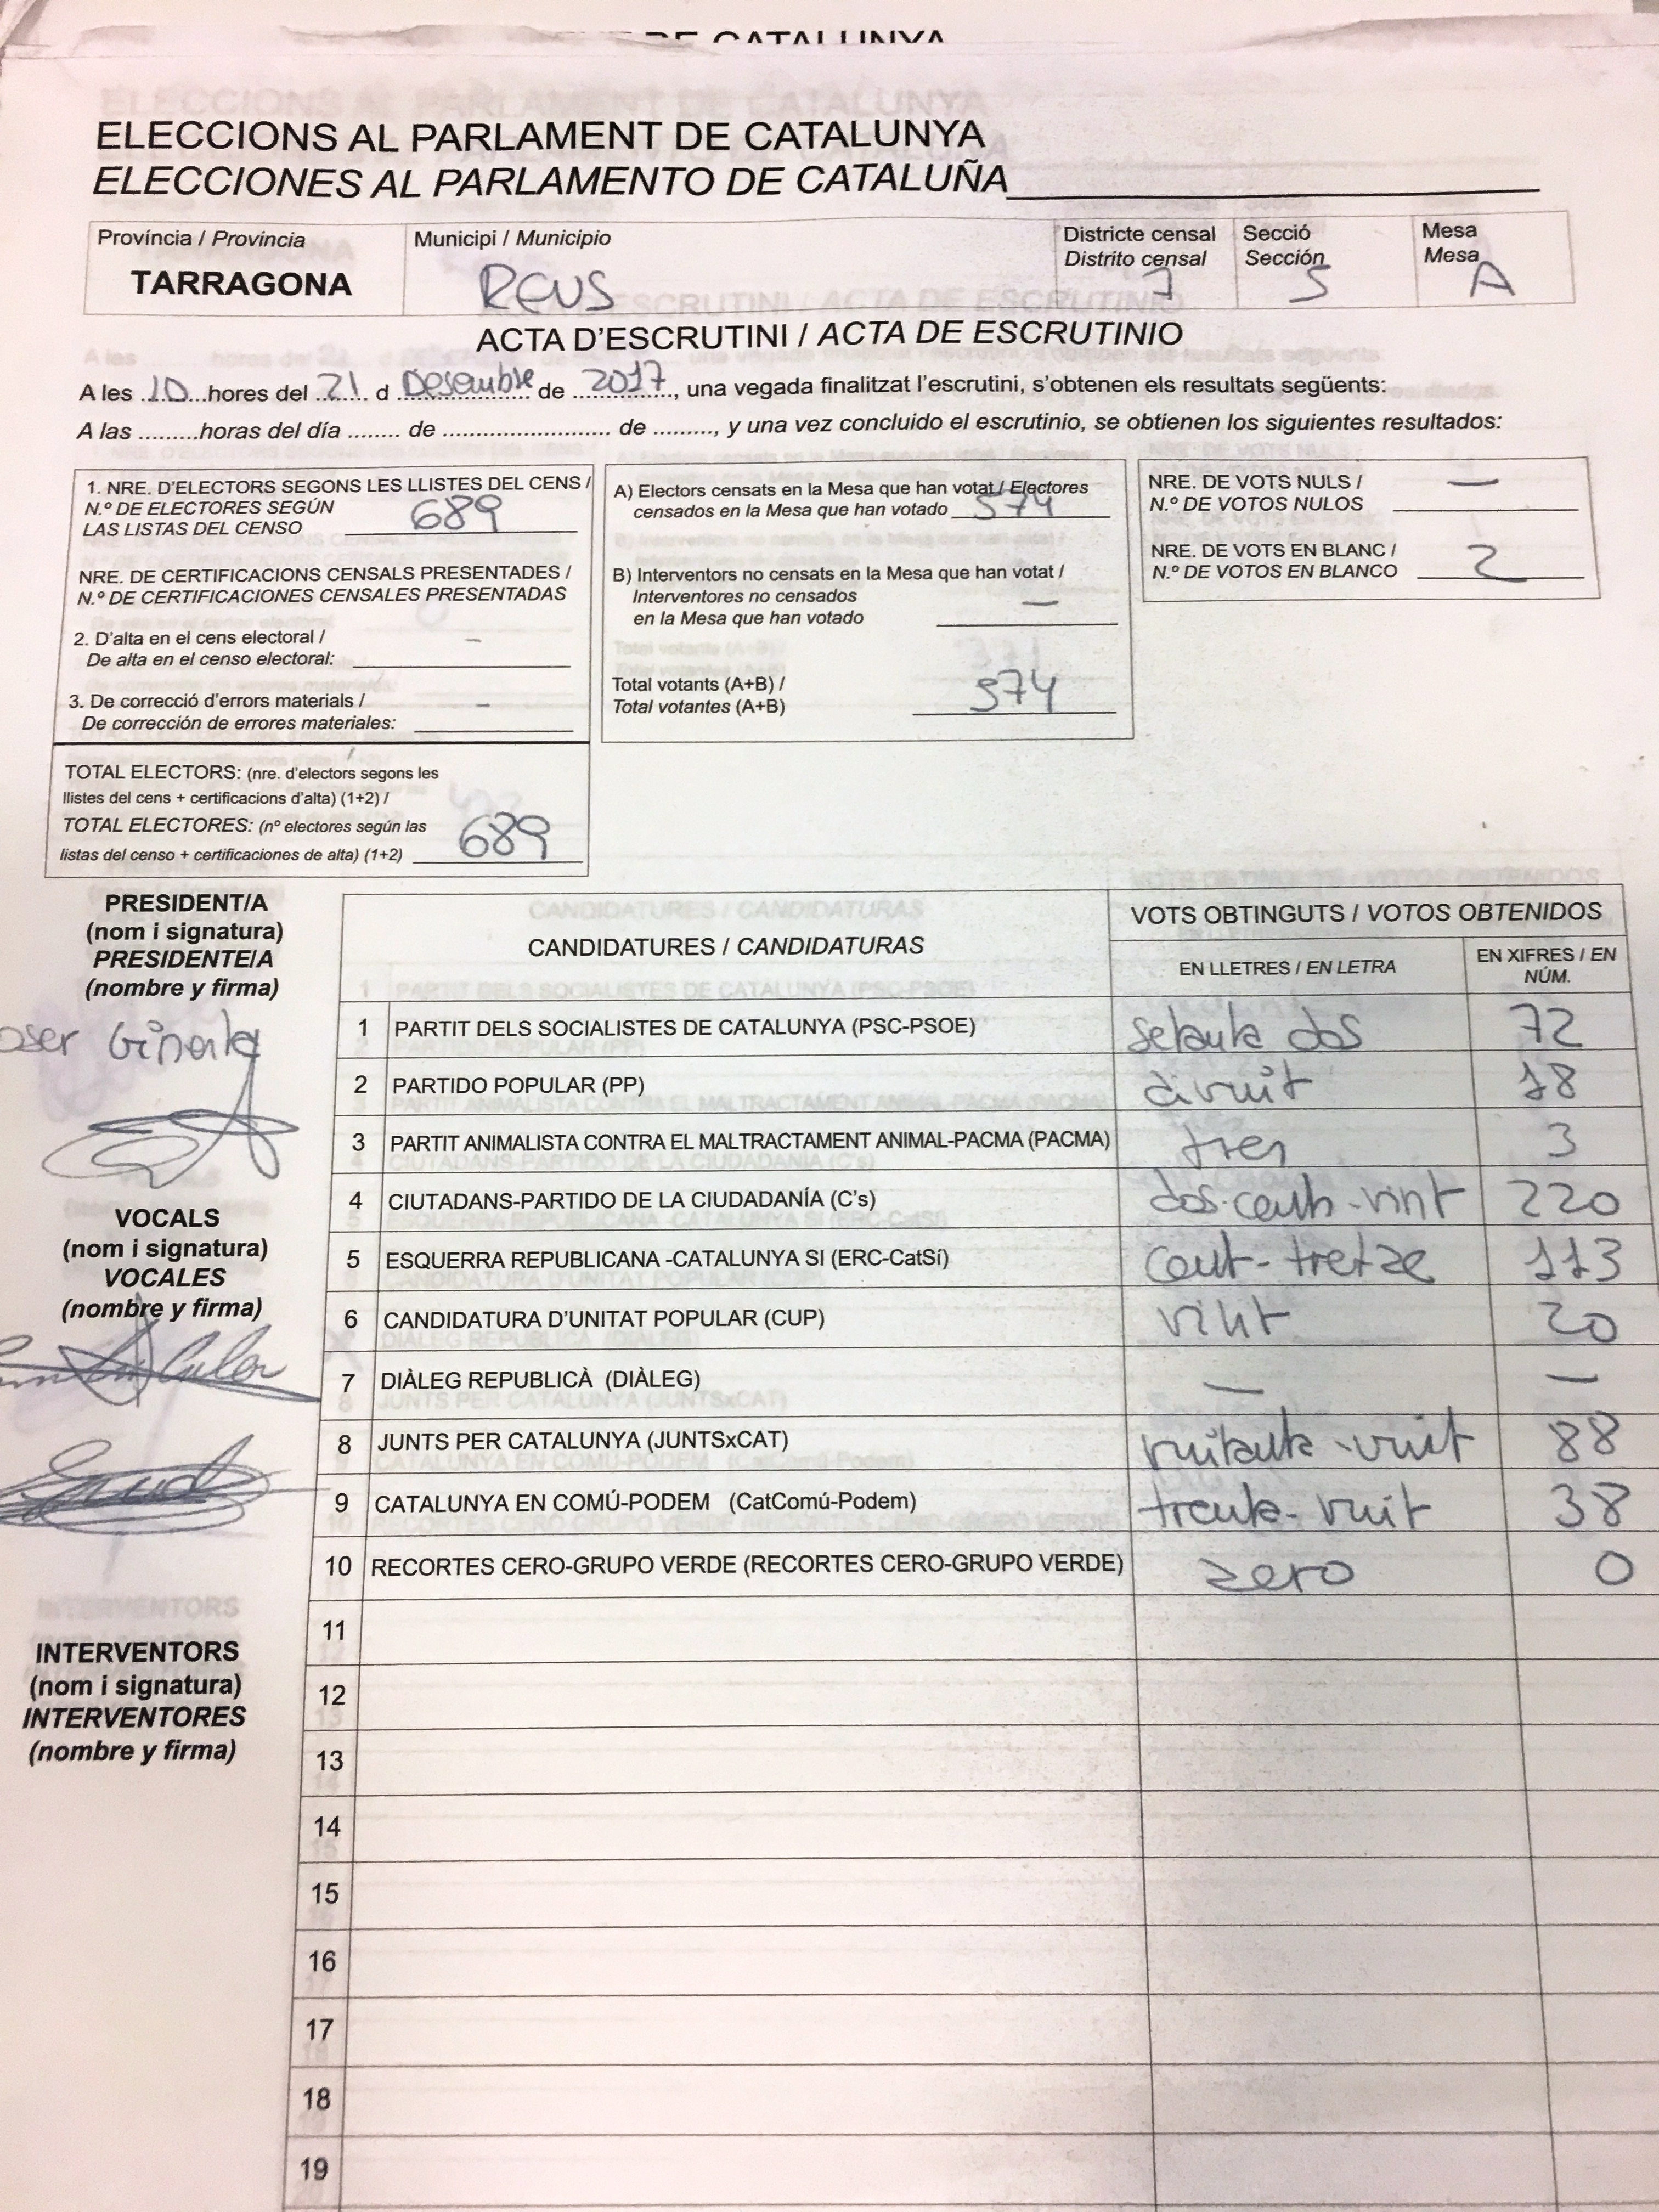 DE CATALUNYA
ELECCIONS AL PARLAMENT DE CATALUNYA
ELECCIONES AL PARLAMENTO DE CATALUÑA
Província / Provincia
TARRAGONA
Municipi / Municipio
REUS
Districte censal
Distrito censal
7
Secció
Sección
5
Mesa
Mesa
A
ACTA D'ESCRUTINI / ACTA DE ESCRUTINIO
A les 10 hores del 21 d Desembre de 2017, una vegada finalitzat l'escrutini, s'obtenen els resultats següents:
A las .........horas del día ........ de ........................ de ........., y una vez concluido el escrutinio, se obtienen los siguientes resultados:
1. NRE. D'ELECTORS SEGONS LES LLISTES DEL CENS /
N.º DE ELECTORES SEGÚN
LAS LISTAS DEL CENSO 689
NRE. DE CERTIFICACIONS CENSALS PRESENTADES /
N.º DE CERTIFICACIONES CENSALES PRESENTADAS
2. D'alta en el cens electoral /
De alta en el censo electoral: –
3. De correcció d'errors materials /
De corrección de errores materiales: –
TOTAL ELECTORS: (nre. d'electors segons les
llistes del cens + certificacions d'alta) (1+2) /
TOTAL ELECTORES: (nº electores según las
listas del censo + certificaciones de alta) (1+2) 689
A) Electors censats en la Mesa que han votat / Electores
censados en la Mesa que han votado 574
B) Interventors no censats en la Mesa que han votat /
Interventores no censados
en la Mesa que han votado —
Total votants (A+B) /
Total votantes (A+B) 574
NRE. DE VOTS NULS /
N.º DE VOTOS NULOS —
NRE. DE VOTS EN BLANC /
N.º DE VOTOS EN BLANCO 2
PRESIDENT/A
(nom i signatura)
PRESIDENTE/A
(nombre y firma)
VOCALS
(nom i signatura)
VOCALES
(nombre y firma)
INTERVENTORS
(nom i signatura)
INTERVENTORES
(nombre y firma)
CANDIDATURES / CANDIDATURAS
VOTS OBTINGUTS / VOTOS OBTENIDOS
EN LLETRES / EN LETRA
EN XIFRES / EN NÚM.
1 PARTIT DELS SOCIALISTES DE CATALUNYA (PSC-PSOE) setanta dos 72
2 PARTIDO POPULAR (PP) divuit 18
3 PARTIT ANIMALISTA CONTRA EL MALTRACTAMENT ANIMAL-PACMA (PACMA) tres 3
4 CIUTADANS-PARTIDO DE LA CIUDADANÍA (C's) dos-cents-vint 220
5 ESQUERRA REPUBLICANA -CATALUNYA SI (ERC-CatSí) cent-tretze 113
6 CANDIDATURA D'UNITAT POPULAR (CUP) vint 20
7 DIÀLEG REPUBLICÀ (DIÀLEG) — —
8 JUNTS PER CATALUNYA (JUNTSxCAT) vuitanta-vuit 88
9 CATALUNYA EN COMÚ-PODEM (CatComú-Podem) trenta-vuit 38
10 RECORTES CERO-GRUPO VERDE (RECORTES CERO-GRUPO VERDE) zero 0
11
12
13
14
15
16
17
18
19